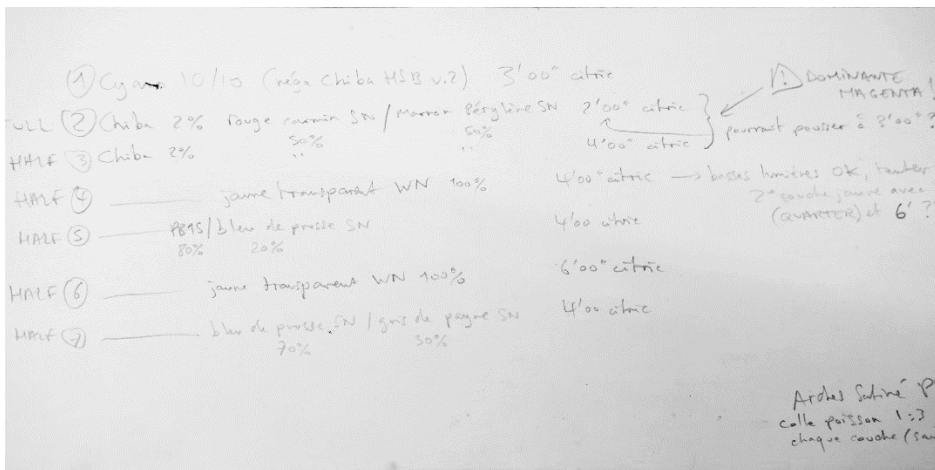 ① Cyano 10/10 (néga Chiba HSB v.2) 3'00" citric
⚠ DOMINANTE
MAGENTA !
FULL ② Chiba 2% rouge carmin SN / Marron Pérylène SN 2'00" citric
50% 50%
pourrait pousser à 3'00" ?
HALF ③ Chiba 2% " " 4'00" citric
HALF ④ jaune transparent WN 100% 4'00" citric → basses lumières OK, tenter
2e couche jaune avec
(QUARTER) et 6' ?
HALF ⑤ PB15/bleu de prusse SN 4'00 citric
80% 20%
HALF ⑥ jaune transparent WN 100% 6'00" citric
HALF ⑦ bleu de prusse SN / gris de payne SN 4'00 citric
70% 30%
Arches Satiné P
colle poisson 1:3
chaque couche (sau